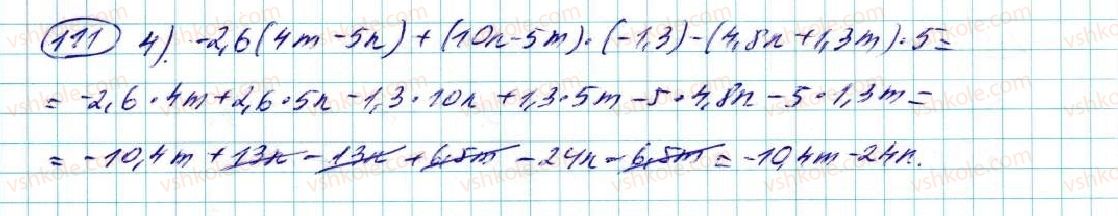 111 4). -2,6(4m-5n)+(10n-5m)·(-1,3)-(4,8n+1,3m)·5=
=-2,6·4m+2,6·5n-1,3·10n+1,3·5m-5·4,8n-5·1,3m=
=-10,4m+13n-13n+6,5m-24n-6,5m=-10,4m-24n.
vshkole.com